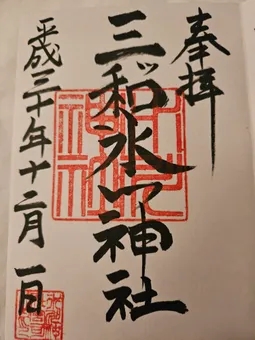 奉拝
三ッ和氷川神社
平成三十年十二月一日